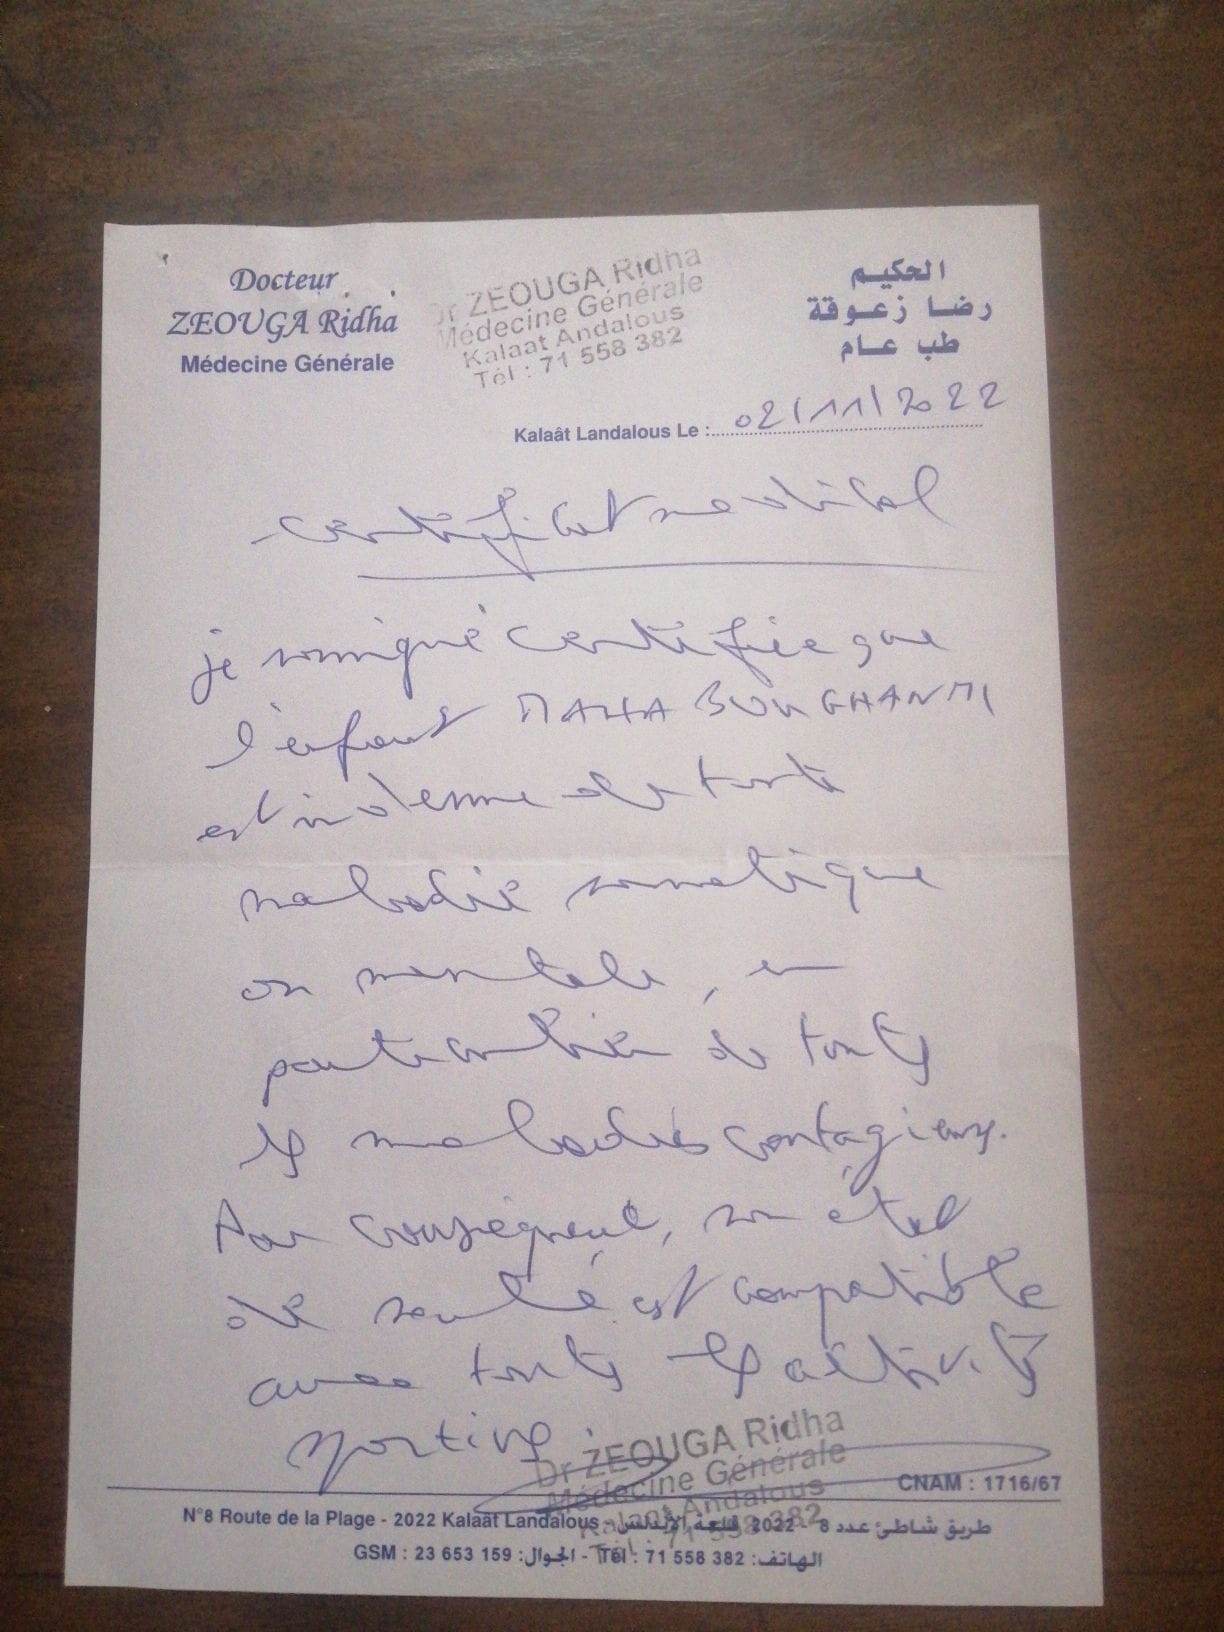 Docteur
ZEOUGA Ridha
Médecine Générale
Dr ZEOUGA Ridha
Médecine Générale
Kalaat Andalous
Tél : 71 558 382
الحكيم
رضا زعوقة
طب عام
Kalaât Landalous Le : 02/11/2022
certificat medical
je soussigné certifiée que
l'enfant MAHA BOUGHANMI
est indemne de toute
maladie somatique
ou mentale, en
particulier de toutes
les maladies contagieuses.
Par conséquent, son état
de santé est compatible
avec toutes les activités
sportives.
Dr ZEOUGA Ridha
Médecine Générale
Kalaat Andalous
Tél : 71 558 382
CNAM : 1716/67
N°8 Route de la Plage - 2022 Kalaât Landalous - طريق شاطئ عدد 8 - 2022 قلعة الأندلس
GSM : 23 653 159 :الجوال - Tél : 71 558 382 :الهاتف